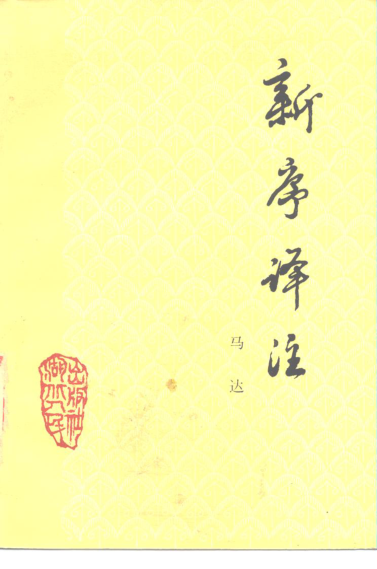 新序译注
马达
湖北人民
出版社